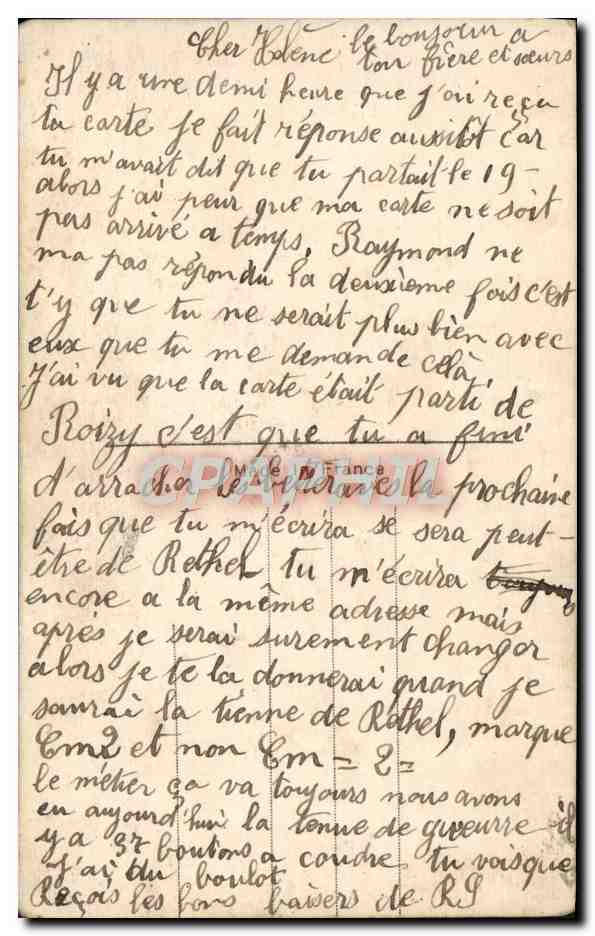 Cher Hélène le bonjour a
ton frère et sœurs
Il y a une demi heure que j'ai reçu
ta carte je fait réponse aussitôt çar
tu m'avait dit que tu partait le 19 -
alors j'ai peur que ma carte ne soit
pas arrivé a temps. Raymond ne
ma pas répondu la deuxième fois c'est
t'y que tu ne serait plus bien avec
eux que tu me demande celà
J'ai vu que la carte était parti de
Roizy c'est que tu a fini
Made in France
CPAPHIL
d'arracher les betteraves la prochaine
fois que tu m'écrira se sera peut-
être de Rethel tu m'écrira
encore a la même adresse mais
après je serai surement changer
alors je te la donnerai quand je
saurai la tienne de Rethel, marque
Cm2 et non Cm = 2 =
le métier ça va toujours nous avons
eu aujourd'hui la tenue de gueurre il
y a 37 boutons a coudre tu vois que
j'ai du boulot
Reçois les bons baisers de RS